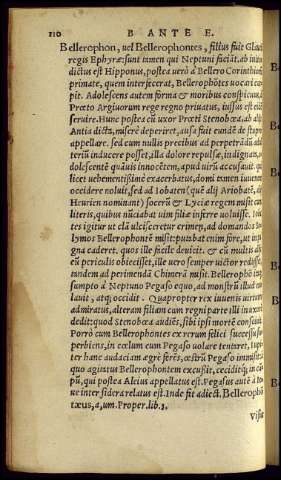 110 B ANTE E.
Bellerophon, uel Bellerophontes, filius fuit Glauci
regis Ephyræ: sunt tamen qui Neptuni faciāt. ab initio
dictus est Hipponus, postea uerò à Bellero Corinthiorū
primate, quem interfecerat, Bellerophōtes uocari coe
pit. Adolescens autem forma & moribus conspicuus,
Prœto Argiuorum rege regno priuatus, iussus est ei
seruire. Hunc postea cū uxor Prœti Stenobœa, ab alijs
Antia dicta, miserè deperiret, ausa fuit eundē de stupro
appellare. sed cum nullis precibus ad perpetrādū adul
teriū inducere posset, illa dolore repulsæ, indignata,
dolescentē quāuis innocētem, apud uirū accusauit. qui
licet uehementissimè exacerbatus, domi tamen iuuenē
occidere noluit, sed ad Iobaten (quē alij Ariobatē, alij
Heurien nominant) socerū & Lyciæ regem misit cum
literis, quibus nūciabat uim filiæ inferre uoluisse. Ioba
tes igitur ut clā ulcisceretur crimen, ad domandos So
lymos Bellerophontē misit: putabat enim fore, ut in pu
gna caderet, quos ille facilè deuicit. & cū multis alijs
eū periculis obiecisset, ille uero semper uictor redisset,
tandem ad perimendā Chimærā misit. Bellerophō igitur
sumpto à Neptuno Pegaso equo, ad monstrū illud euo
lauit, atq; occidit. Quapropter rex iuuenis uirtutem
admiratus, alteram filiam cum regni parte illi in uxorē
dedit: quod Stenobœa audiēs, sibi ipsi mortē consciuit.
Porrò cum Bellerophontes ex rerum felici successu su
perbiens, in cœlum cum Pegaso uolare tentaret, Iupi
ter hanc audaciam ægrè ferēs, œstrū Pegaso immisit:
quo agitatus Bellerophontem excussit, ceciditq; in cā
pū, qui postea Aleius appellatus est. Pegasus autē à Io
ue inter sidera relatus est. Inde fit adiect. Bellerophō
tæus, a, um. Proper. lib. 3.